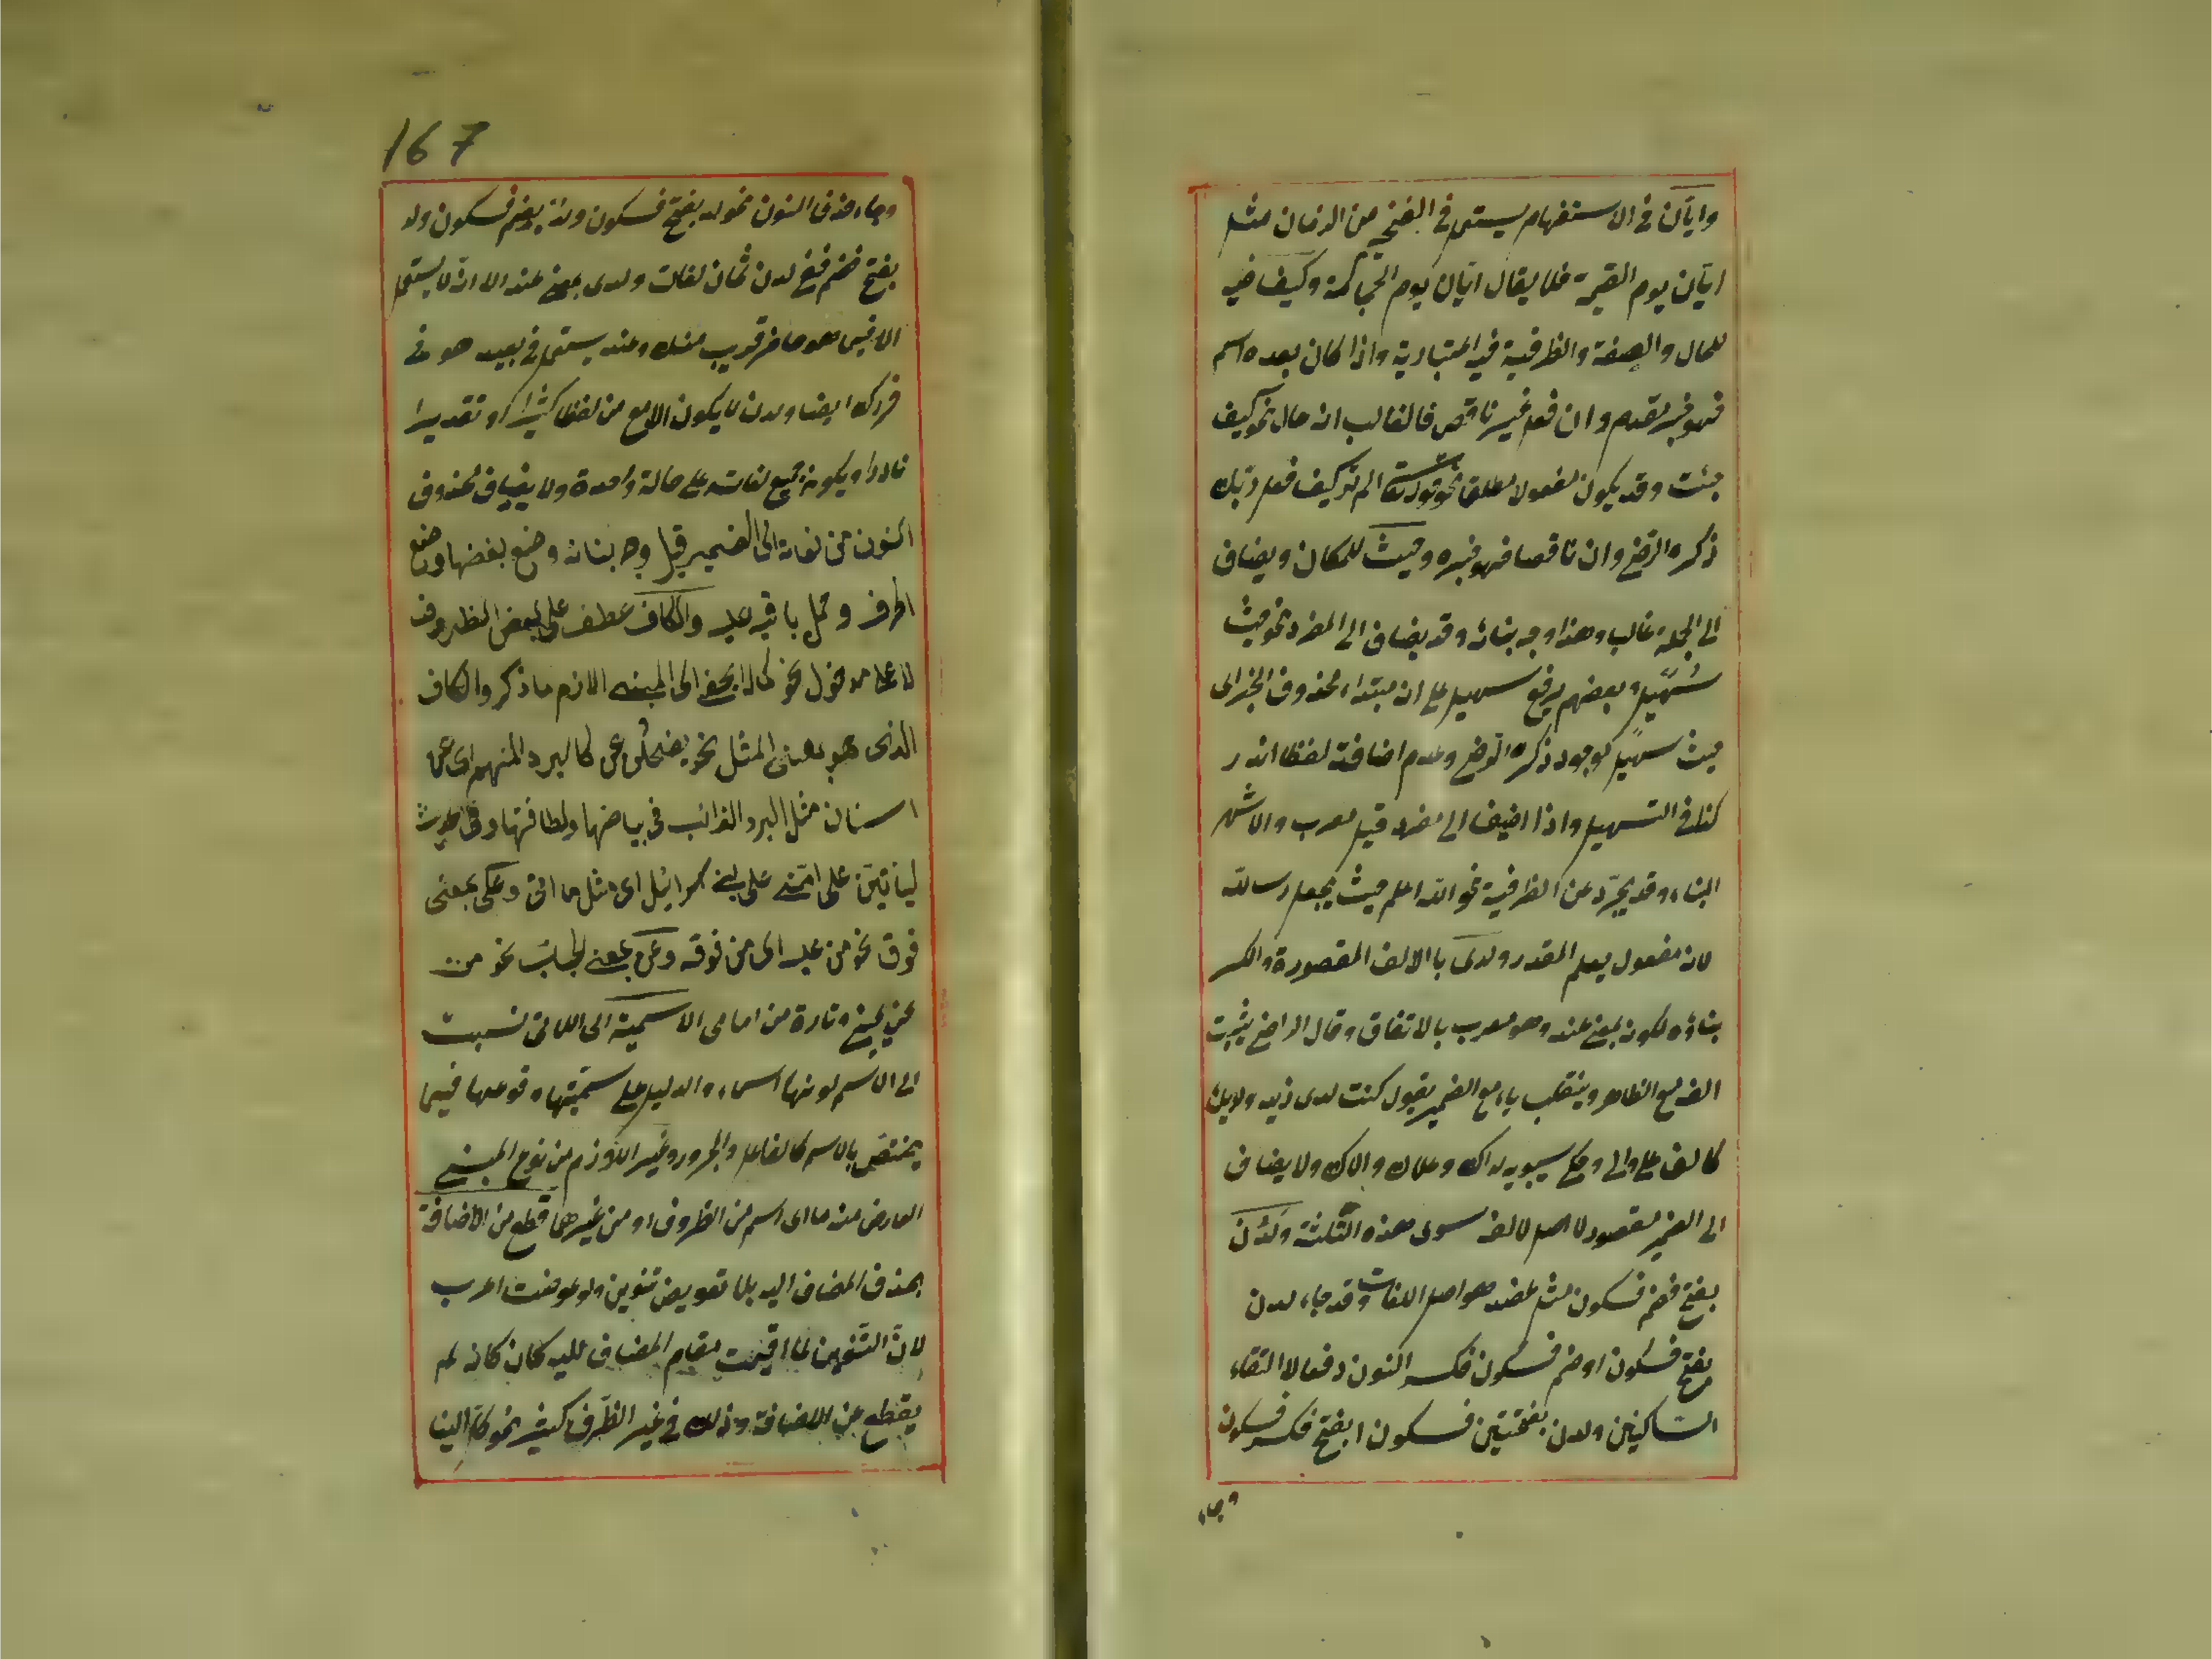 وايّان في الاستفهام يستعمل في الفخيم من الزمان مثل
ايّان يوم القيمة فلا يقال ايّان يوم الحجامة وكيف فيه
للحال والصفة والظرفية فيه اعتبارية واذا كان بعده اسم
فهو خبر مقدم وان فعل غير ناقص فالغالب انه حال نحو كيف
جئت وقد يكون مفعولا مطلقا نحو قوله تعالى الم تر كيف فعل ربك
ذكره الرضي وان ناقصا فهو خبره وحيث للمكان ويضاف
الى الجملة غالب وهذا وجه بنائه وقد يضاف الى المفرد نحو حيث
سُهَيل وبعضهم يرفع سهيل على انه مبتداء محذوف الخبر اى
حيث سهيل موجود ذكره الرضي وعدم اضافته لفظا اندر
كذا في التسهيل واذا اضيف الى مفرد قيل معرب والاشهر
البناء وقد يجرّد عن الظرفية نحو الله اعلم حيث يجعل رسالته
لانه مفعول يعلم المقدر ولدى با الالف المقصورة والكسر
بناؤه لكونه بمعنى عند وهو معرب بالاتفاق وقال الراضي يثبت
الفه مع الظاهر وينقلب ياء مع الضمير يقول كنت لدى زيد ولديك
كالف على والى وحكى سيبويه لداك وعلاك والاك ولا يضاف
الى الضمير مقصور لا اصل لالفه سوى هذه الثلثة ولَدُن
بفتح فضم فسكون مثل عضد هو اصل اللغات وقد جاء لدن
بفتح فسكون او ضم فسكون فكسر النون دفعا لالتقاء
الساكنين ولدن بفتحتين فسكون ا بفتح فكسر فسكون
وجاء
167
وجاء حذف النون نحو لد بفتح فسكون ولد بضم فسكون ولد
بفتح فضم ففي لدن ثمان لغات ولدى بمعنى عند الا انه لا يستعمل
الا فيما هو حاضر قريب منك وعند يستعمل في بعيد هو في
حرزك ايضا ولدن لا يكون الا مع من لفظا كثيرا او تقديرا
نادرا ويكون جميع لغاته على حالة واحدة ولا يضاف محذوف
النون من لغاته الى الضمير قيل وجه بنائه وضع بعضها وضع
الحرف وحمل باقيه عليه والكاف عطف على بعض الظروف
لا على مدخول نحو كما لا يخفى اى المبنى اللازم ما ذكر والكاف
الذى هو بمعنى المثل نحو يضحكن عن كالبرد المنهم اى عن
اسنان مثل البرد الذائب في بياضها ولطافتها وفي الحديث
ليأتين على امتى على بنى اسرائيل اى مثل ما اتى وعلى بمعنى
فوق نحو من عليه اى من فوقه وعن بمعنى الجانب نحو من
عن يمينى وتارة من اسامى الاسمية اى اللاتى نسبت
الى الاسم لونها اسماء والدليل على سمّيتها وقوعها فيما
يختصّ بالاسم كالفاعل والمجرور وغير اللازم من نوع المبنى
العارض منه ما اى اسم من الظروف او من غيرهما قطع من الاضافة
بحذف المضاف اليه بلا تعويض تنوين ولو عوضت اعرب
لانّ التنوين لما اقيمت مقام المضاف اليه كان كانه لم
يقطع عن الاضافة وذلك في غير الظرف كثير نحو كل الينا